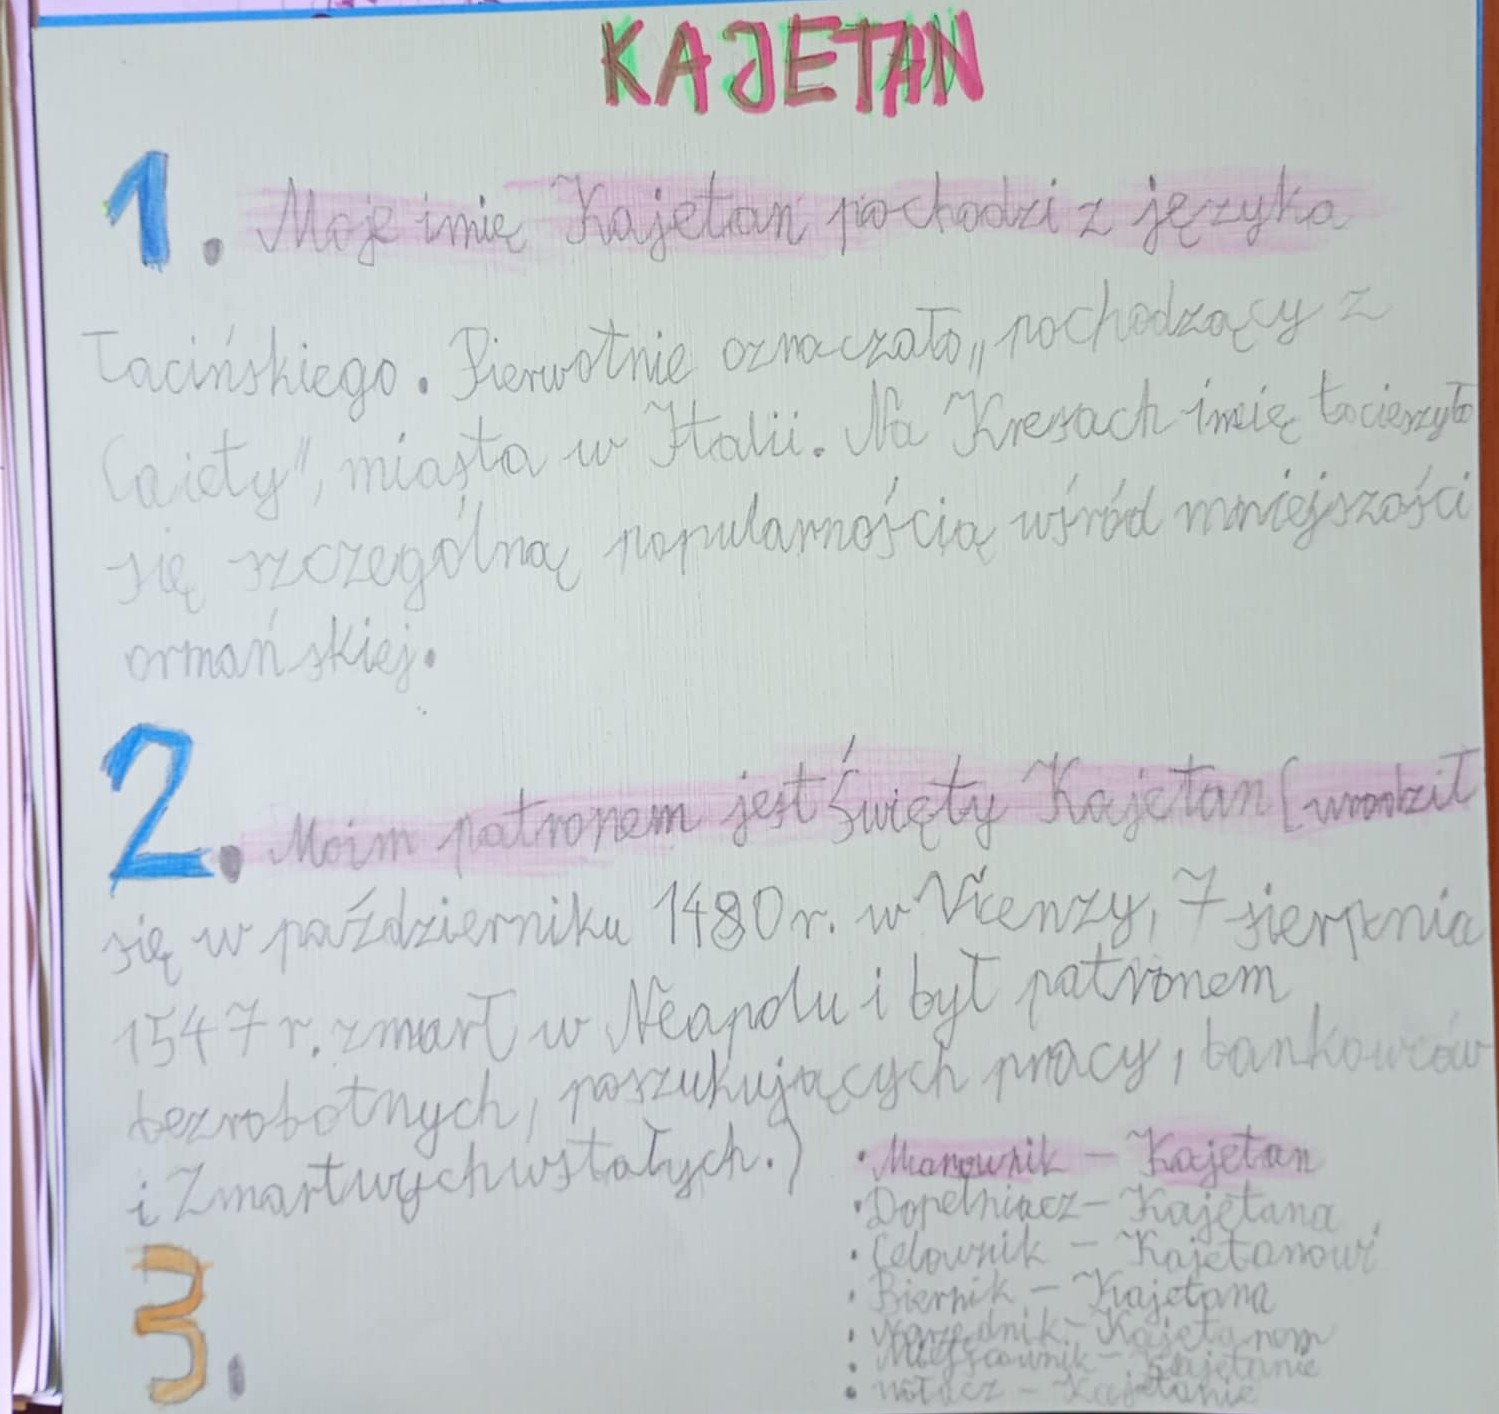 KAJETAN
1. Moje imię Kajetan pochodzi z języka
łacińskiego. Pierwotnie oznaczało „pochodzący z
Caiety", miasta w Italii. Na Kresach imię tocieszyło
się szczególną popularnością wśród mniejszości
ormańskiej.
2. Moim patronem jest Święty Kajetan (urodził
się w październiku 1480 r. w Vicenzy, 7 sierpnia
1547 r. zmarł w Neapolu i był patronem
bezrobotnych, poszukujących pracy, bankowców
i Zmartwychwstałych.)
3.
• Mianownik – Kajetan
• Dopełniacz – Kajetana
• Celownik – Kajetanowi
• Biernik – Kajetana
• Narzędnik – Kajetanem
• Miejscownik – Kajetanie
• Wołacz – Kajetanie